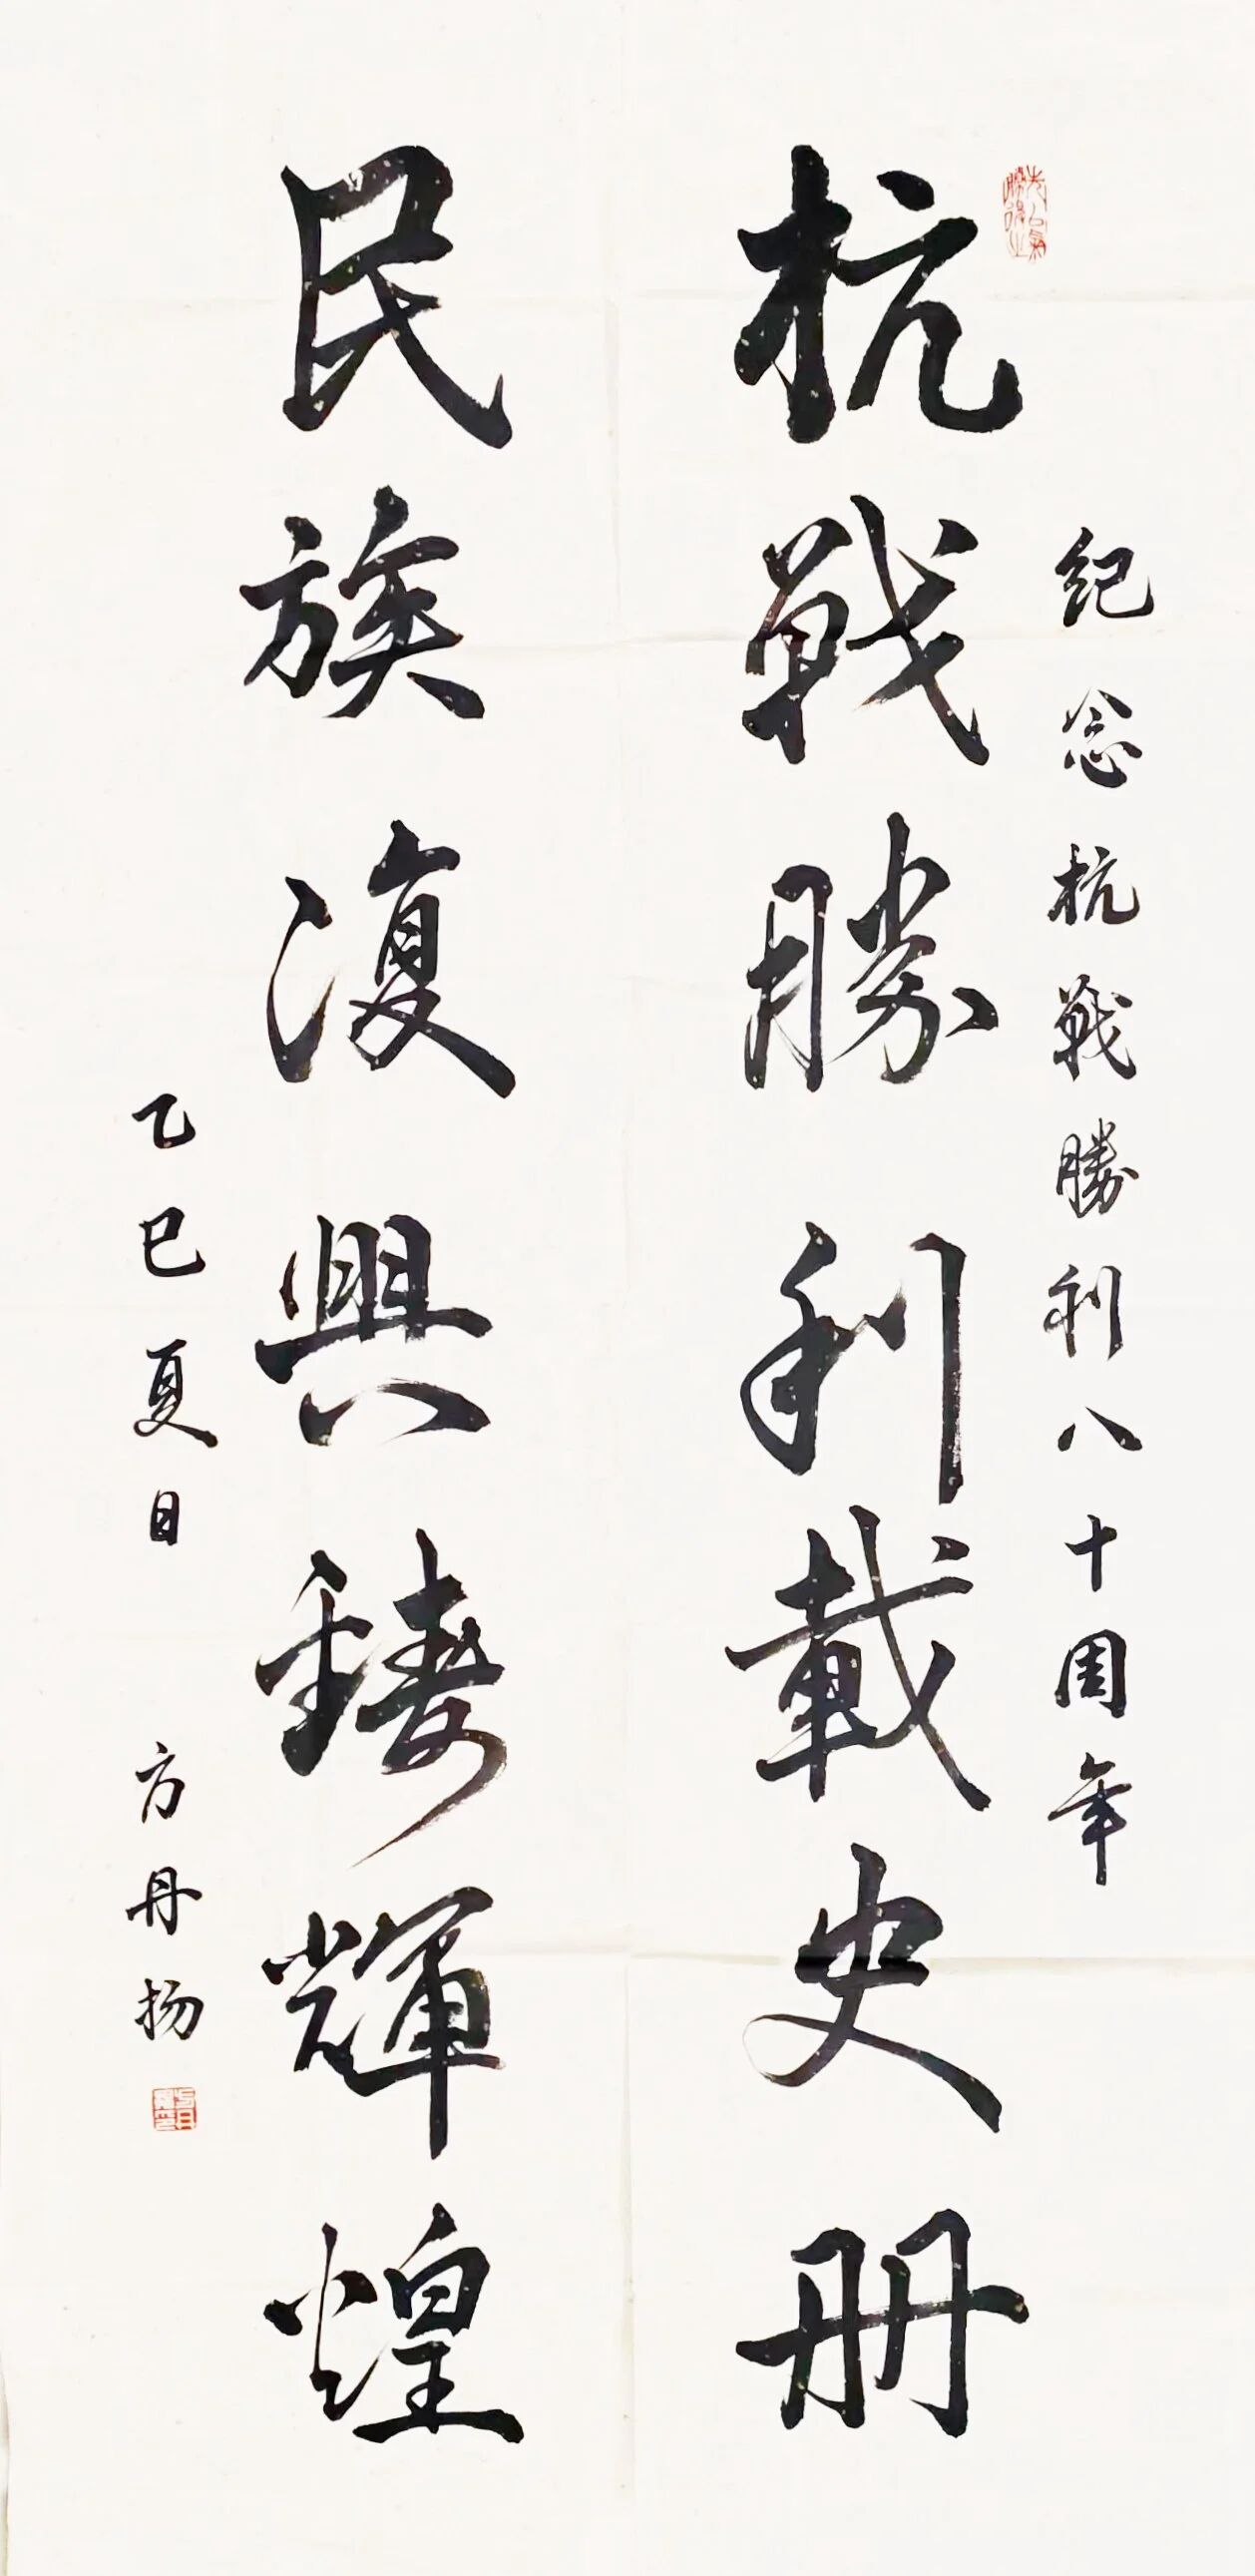 紀念抗戰勝利八十周年
抗戰勝利載史册
民族復興鑄輝煌
乙巳夏日 方丹扬